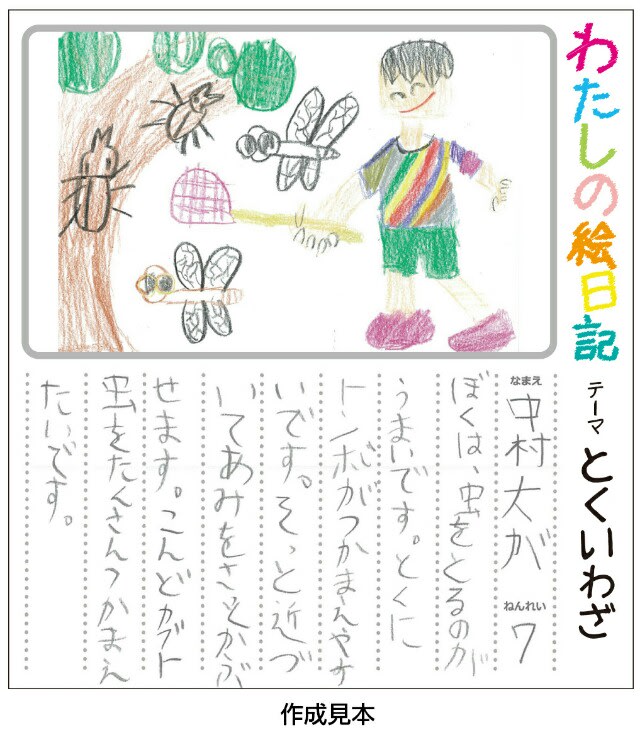 わたしの絵日記
テーマ とくいわざ
なまえ 中村大が ねんれい 7
ぼくは、虫をとるのが
うまいです。とくに
トンボがつかまえやす
いです。そっと近づ
いてあみをさっとかぶ
せます。こんどカブト
虫をたくさんつかまえ
たいです。
作成見本